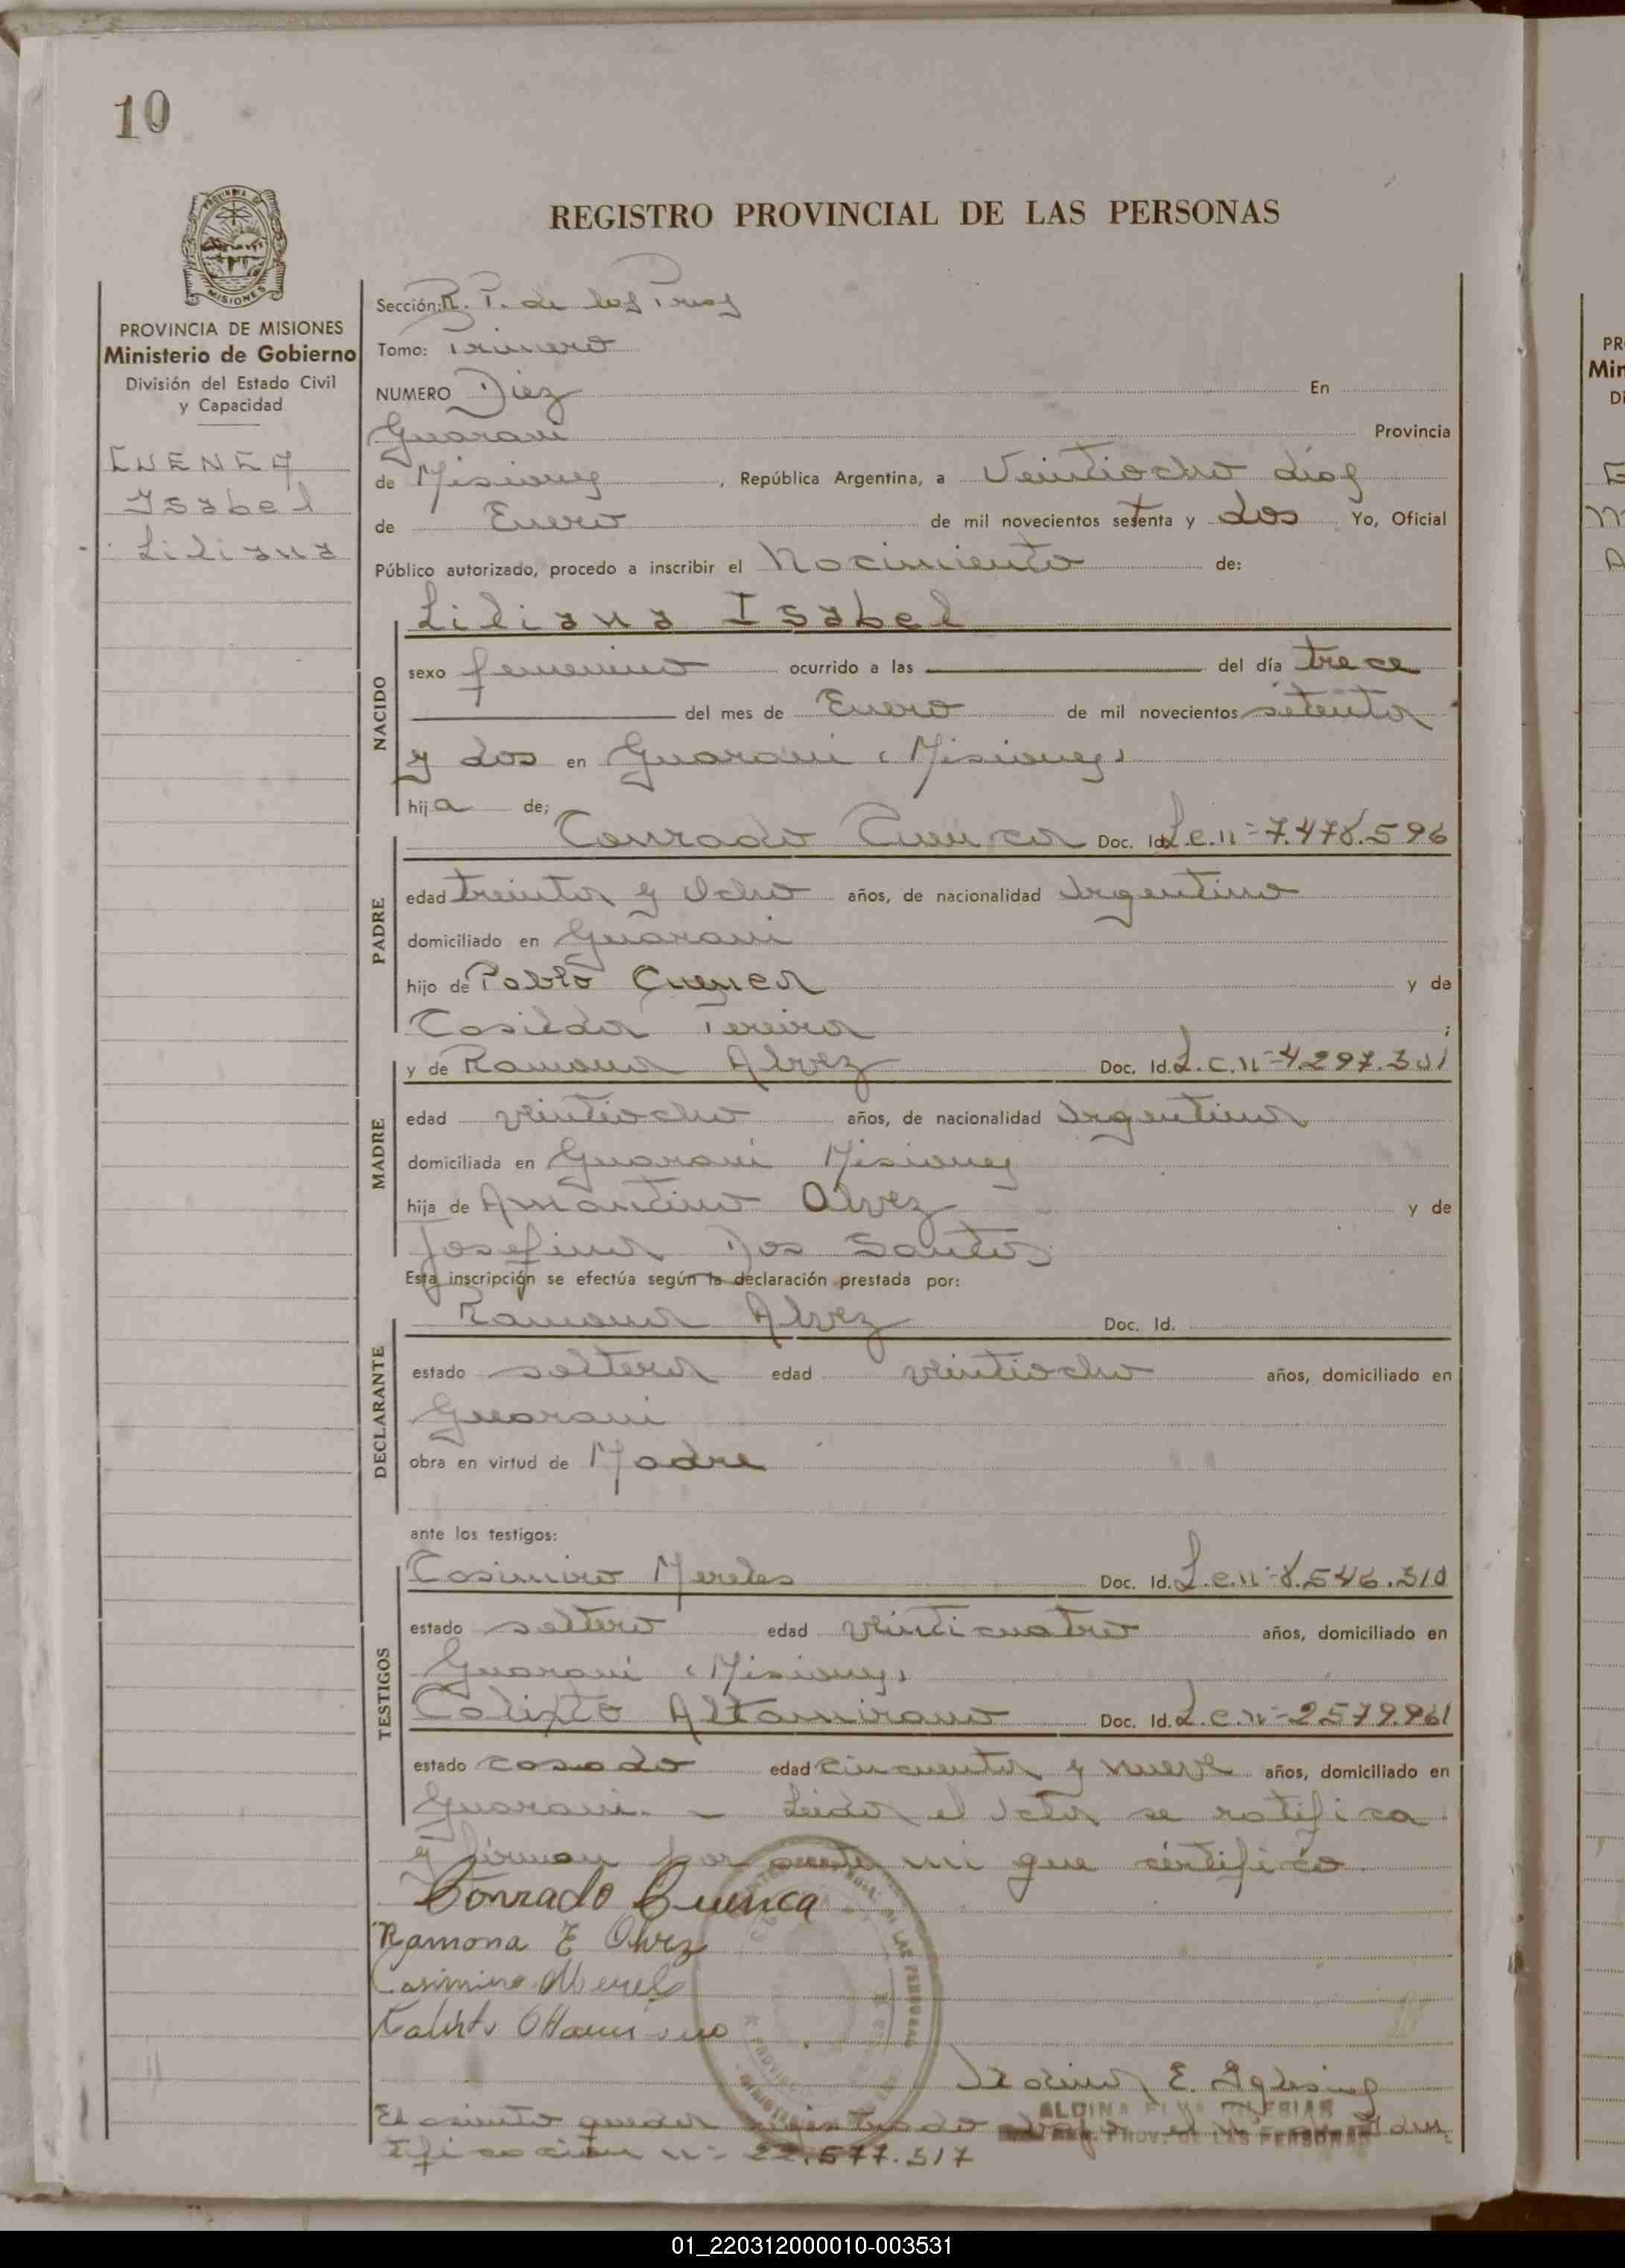 10
PROVINCIA DE MISIONES
REGISTRO PROVINCIAL DE LAS PERSONAS
PROVINCIA DE MISIONES
Ministerio de Gobierno
División del Estado Civil
y Capacidad
CUENCA
Isabel
Liliana
Sección: R. P. de las Pnas
Tomo: Primero
NUMERO Diez En
Guarani Provincia
de Misiones, República Argentina, a Veintiocho dias
de Enero de mil novecientos setenta y dos Yo, Oficial
Público autorizado, procedo a inscribir el Nacimiento de:
Liliana Isabel
NACIDO
sexo femenino ocurrido a las del día trece
del mes de Enero de mil novecientos setenta
y dos en Guarani (Misiones)
hija de;
PADRE
Conrado Cuenca Doc. Id. L.e.n= 7.478.596
edad treinta y Ocho años, de nacionalidad Argentino
domiciliado en Guarani
hijo de Pablo Cuenca y de
Casilda Pereira ;
MADRE
y de Ramona Alvez Doc. Id. L.C.n= 4.297.301
edad veintiocho años, de nacionalidad Argentina
domiciliada en Guarani Misiones
hija de Amantino Alvez y de
Josefina Dos Santos
Esta inscripción se efectúa según la declaración prestada por:
DECLARANTE
Ramona Alvez Doc. Id.
estado soltera edad veintiocho años, domiciliado en
Guarani
obra en virtud de Madre
ante los testigos:
TESTIGOS
Casimiro Mereles Doc. Id. L.e.n= 8.546.310
estado soltero edad veinticuatro años, domiciliado en
Guarani (Misiones)
Calixto Altamirano Doc. Id. L.e.n= 2579.961
estado casado edad cincuenta y nueve años, domiciliado en
Guarani. - Leida el Acta se ratifica
y firman por ante mi que certifico
Conrado Cuenca
Ramona E Alvez
Casimiro Merele
Calixto Altamirano
E. Iglesias
El asiento queda registrado bajo el n= de Iden
tificacion n= 22.577.517
01_220312000010-003531